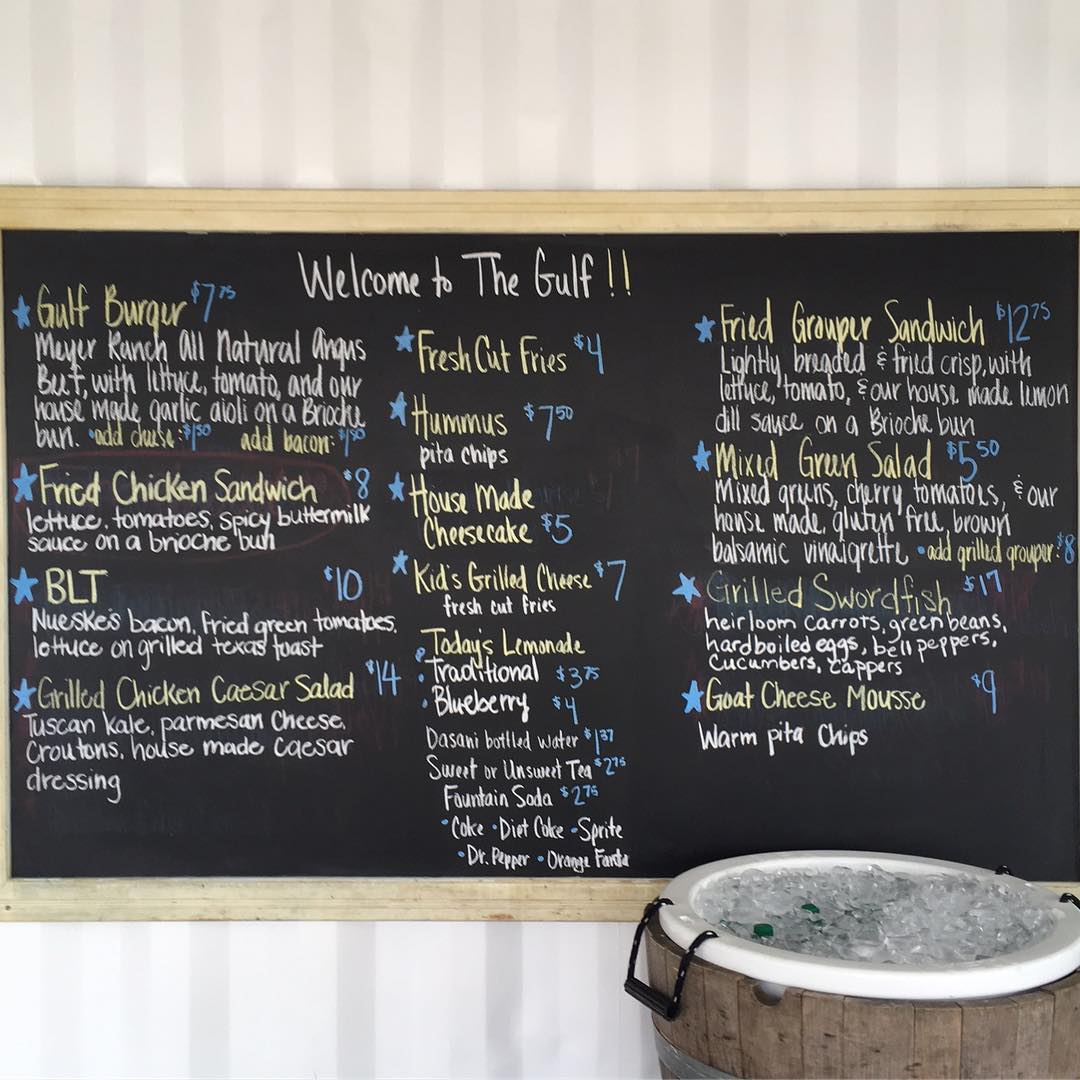 Welcome to The Gulf !!
Gulf Burger $7.75
Meyer Ranch All Natural Angus
Beef, with lettuce, tomato, and our
house made garlic aioli on a Brioche
bun. •add cheese: $1.50 add bacon: $1.50
Fried Chicken Sandwich $8
lettuce, tomatoes, spicy buttermilk
sauce on a brioche bun
BLT $10
Nueske's bacon, fried green tomatoes,
lettuce on grilled texas toast
Grilled Chicken Caesar Salad $14
Tuscan kale, parmesan cheese,
croutons, house made caesar
dressing
Fresh Cut Fries $4
Hummus $7.50
pita chips
House Made
Cheesecake $5
Kid's Grilled Cheese $7
fresh cut fries
Today's Lemonade
• Traditional $3.75
• Blueberry $4
Dasani bottled water $1.37
Sweet or Unsweet Tea $2.75
Fountain Soda $2.75
•Coke •Diet Coke •Sprite
•Dr. Pepper •Orange Fanta
Fried Grouper Sandwich $12.75
Lightly breaded & fried crisp, with
lettuce, tomato, & our house made lemon
dill sauce on a Brioche bun
Mixed Green Salad $5.50
Mixed greens, cherry tomatoes, & our
house made, gluten free, brown
balsamic vinaigrette •add grilled grouper: $8
Grilled Swordfish $17
heirloom carrots, green beans,
hardboiled eggs, bell peppers,
cucumbers, cappers
Goat Cheese Mousse $9
Warm pita Chips